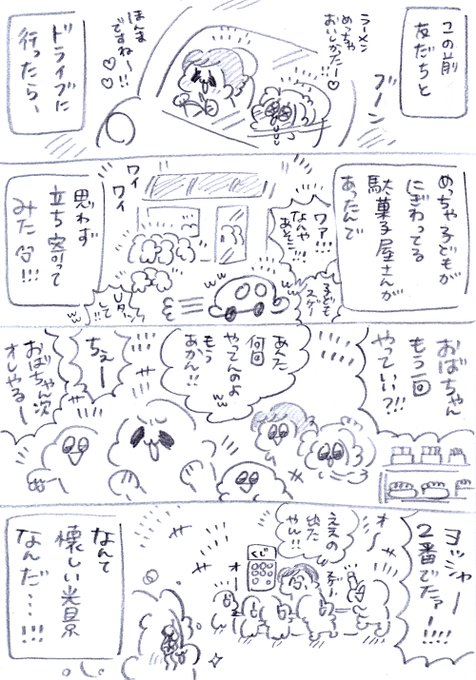 この前
友だちと
ブーン
ラーメン
めっちゃ
おいしかたー!!♡
ほんま
ですねー!!
♡♡
ドライブに
行ったら、
めっちゃ子どもが
にぎわってる
駄菓子屋さんが
あったんで
ワァ!!!
なんや
あそこ!!
子ども
スゲー
Uターン
して!!
ww
ワイ
ワイ
思わず
立ち寄って
みた🙂!!!
おばちゃん
もう一回
やっていい?!!
あんた
何回
やってんのよ
もう
あかん!!
ww
ちぇー
おばちゃん次
オレやるー
ヨッシャー
2番でたァー!!!!
オー
ええの
出た
やん!!
くじ
オー
なんて
懐しい光景
なんだ…!!!